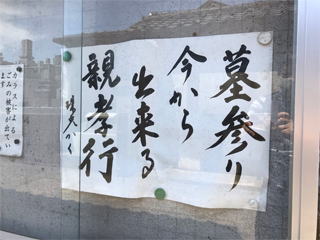 墓参り
今から
出来る
親孝行
カラスによる
ごみの被害が出てい
ます